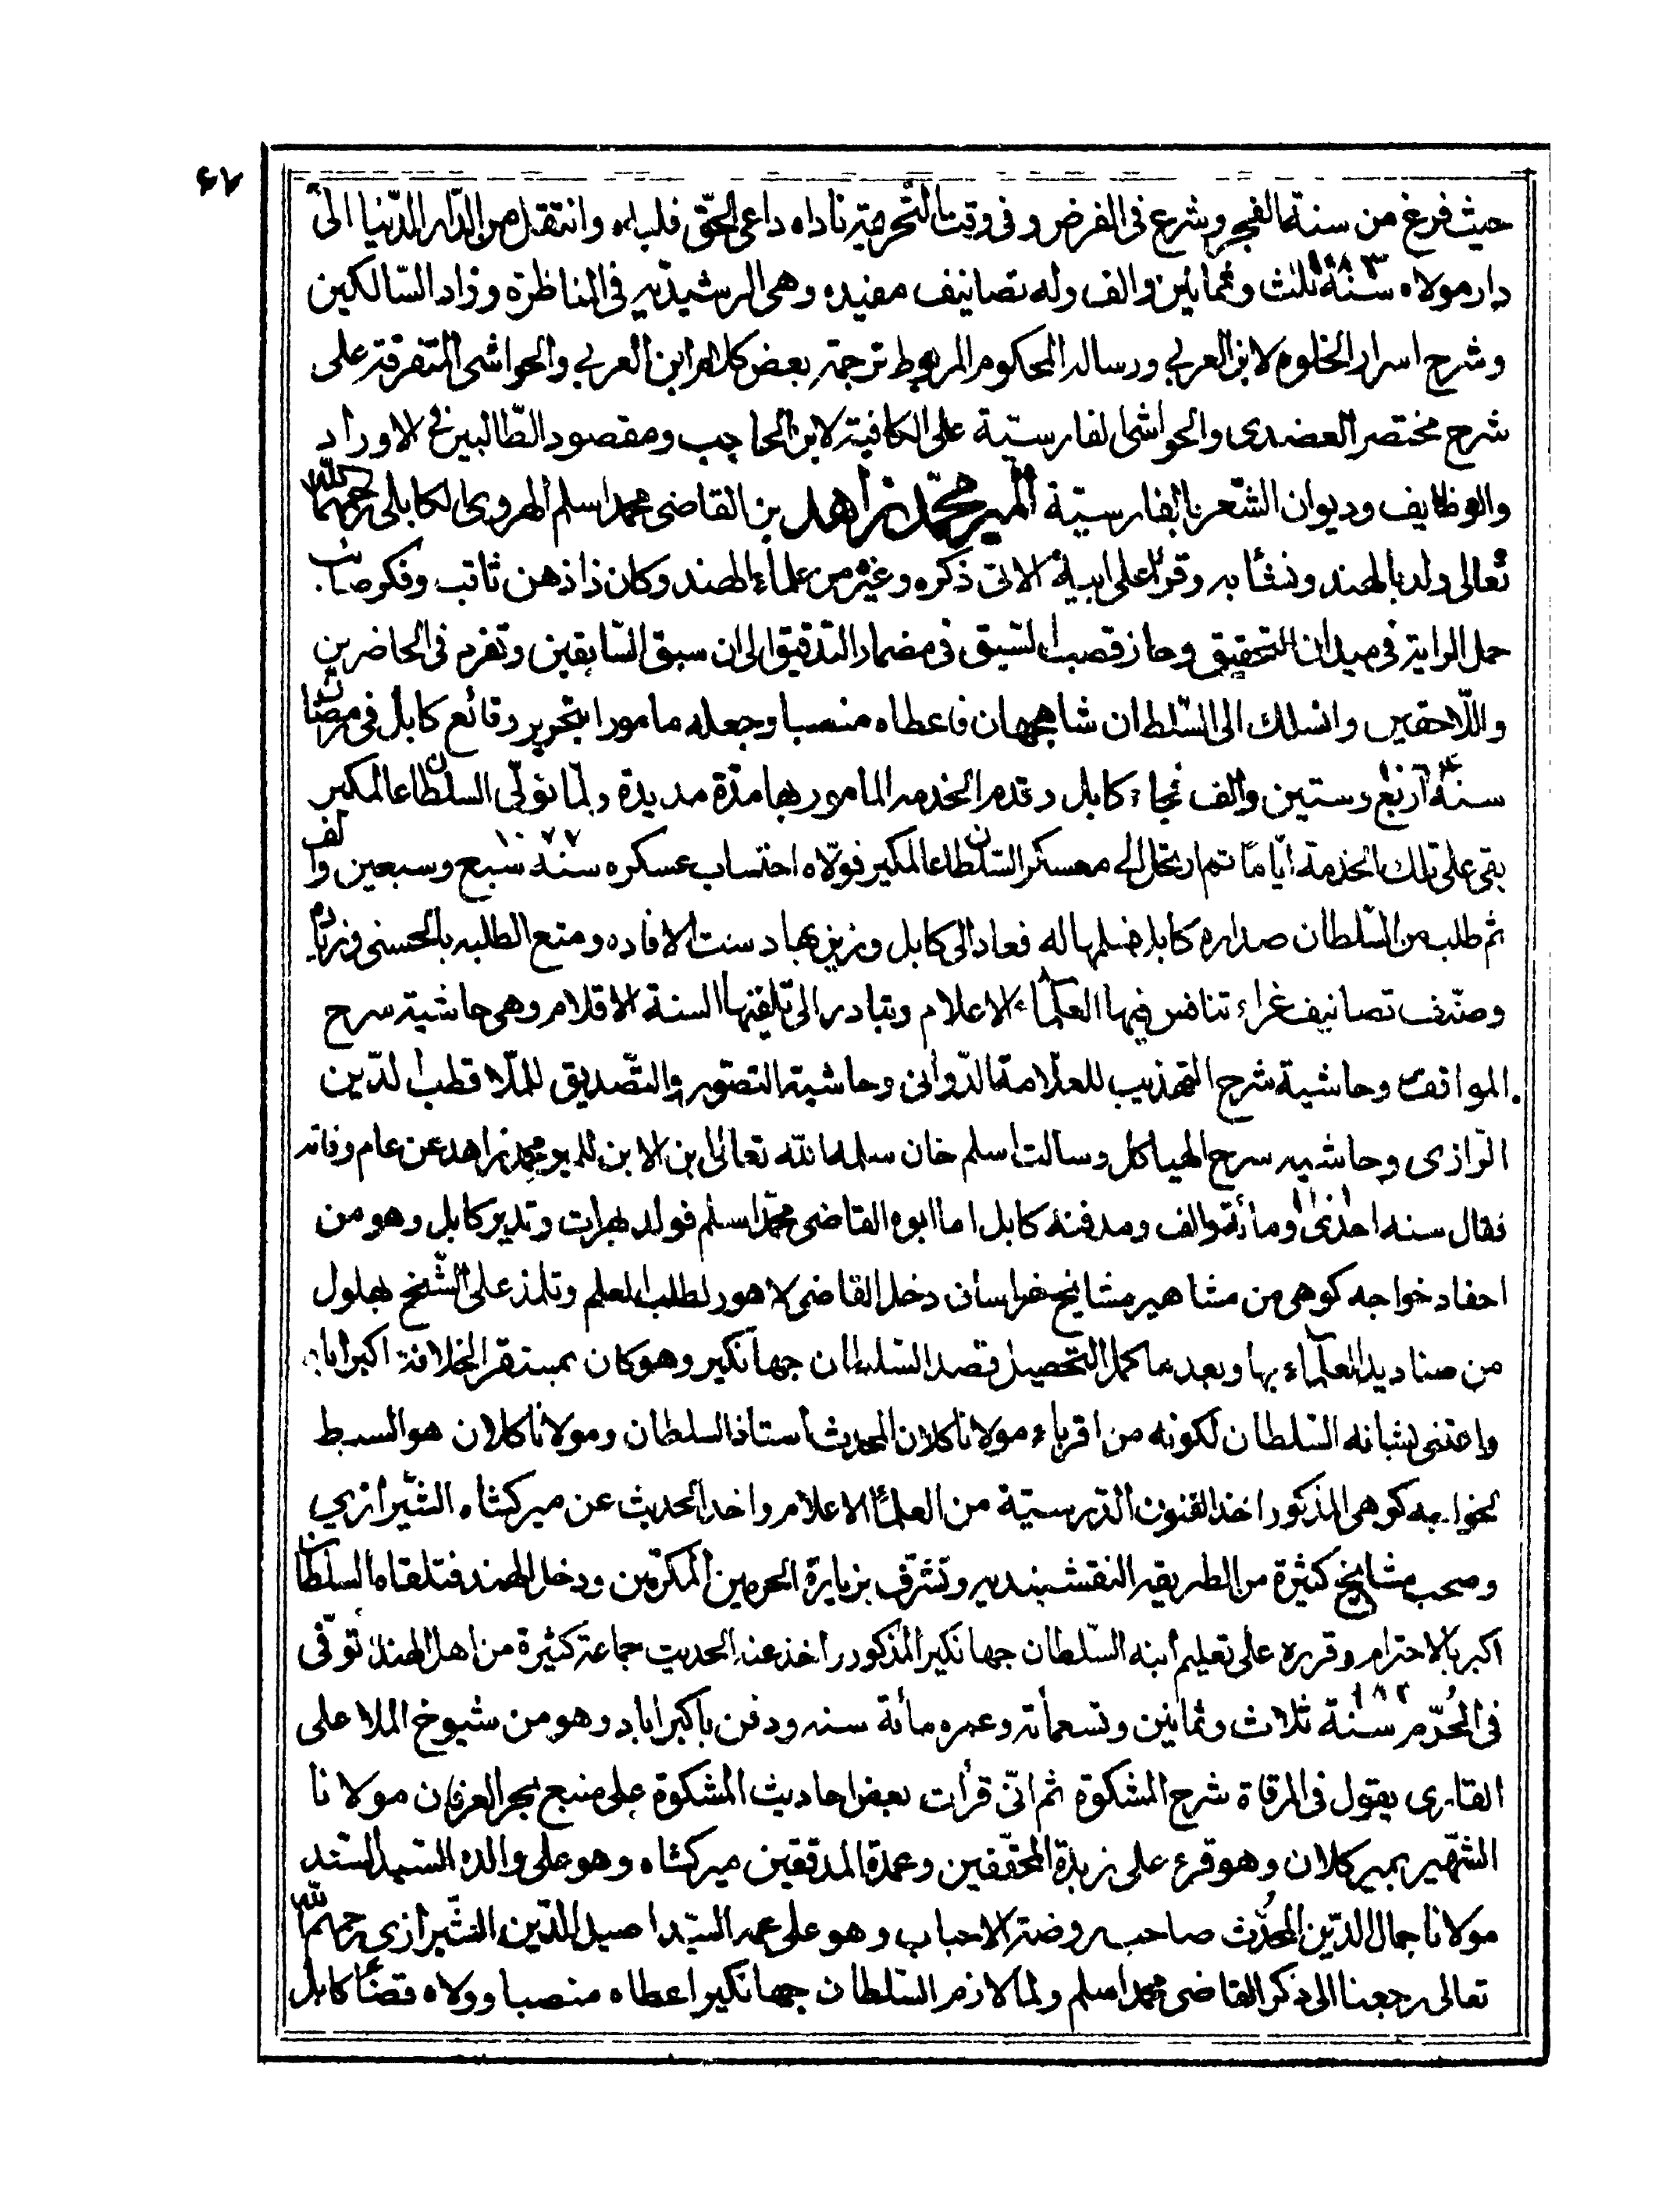 ٦٧
حيث فرغ من سنة الفجر وشرع فى الفرض و فى وقت التحريمة ناداه داعى الحقّ فلباه وانتقل من الدّار الدّنيا الى
دار مولاه سنة ثلث وثمانين والف وله تصانيف مفيده وهى الرشيديه فى المناظرة وزاد السّالكين
وشرح اسرار الخلوه لابن العربي ورساله المحكوم المربوط ترجمة بعض كلام ابن العربي والحواشى المتفرقة على
شرح مختصر العضدى والحواشى الفارسيّة على الكافية لابن الحاجب ومقصود الطّالبين فى الاوراد
والوظايف وديوان الشّعر بالفارسيّة المير محمّد زاهد بن القاضى محمد اسلم الهروى الكابلى رحمهما الله
تعالى ولد بالهند ونشأ به وقرأ على ابيه الاتى ذكره وغيره من علماء الهند وكان ذا ذهن ثاقب وفكر صائب
حمل الراية فى ميدان التحقيق وحاز قصبات السّبق فى مضمار التدقيق الى ان سبق السّابقين وتفرد فى الحاضرين
واللّاحقين وانسلك الى السّلطان شاهجهان فاعطاه منصبا وجعله مامورا بتحرير وقائع كابل فى رمضان
سنة اربع وستين والف فجاء كابل وقدم الخدمه المامور بها مدّة مديدة ولمّا تولّى السلطان عالمكير
بقى على تلك الخدمة ايّامًا ثم ارتحل الى معسكر السّلطان عالمكير فولّاه احتساب عسكره سنه ١٠٧٧ سبع وسبعين والف
ثم طلب من السّلطان صداره كابل فسلمها له فعاد الى كابل وزين بها دست الافاده ومتع الطلبه بالحسنى وزيادة
وصنّف تصانيف غراء تنافس فيها العلماء الاعلام وتبادر الى تلقيها السنة الاقلام وهى حاشيه شرح
المواقف وحاشية شرح التهذيب للعلامة الدّوانى وحاشية التصّور والتّصديق للملّا قطب الدّين
الرّازى وحاشيه شرح الهياكل وسالت اسلم خان سلمه الله تعالى ابن الابن للمير محمد زاهد عن عام وفاته
فقال سنه احدى ومأة والف ومدفنه كابل اما ابوه القاضى محمّد اسلم فولد بهرات وتدير كابل وهو من
احفاد خواجه كوهى من مشاهير مشايخ خراسان دخل القاضى لاهور لطلب العلم وتلمذ على الشّيخ بهلول
من صناديد العلماء بها وبعد ما كمل التحصيل قصد السّلطان جهانكير وهو كان بمستقر الخلافة اكبراباد
واعتنى بشانه السّلطان لكونه من اقرباء مولانا كلان المحدث استاذ السلطان ومولانا كلان هو السبط
لخواجه كوهى المذكور اخذ الفنون الدّرسيّة من العلماء الاعلام واخذ الحديث عن ميركشاه الشّيرازي
وصحب مشايخ كثيرة من الطريقه النقشبنديه وتشرّف بزيارة الحرمين المكرّمين ودخل الهند فتلقاه السلطان
اكبر بالاحترام وقرره على تعليم ابنه السّلطان جهانكير المذكور واخذ عنه الحديث جماعة كثيرة من اهل الهند توفّى
فى المحُرّم سنة ثلاث وثمانين وتسعمأة وعمره مائة سنه ودفن باكبراباد وهو من شيوخ الملا على
القارى يقول فى المرقاة شرح المشكوة ثم انّى قرأت بعض احاديث المشكوة على منبع بحر العرفان مولانا
الشّهير بمير كلان وهو قرء على زبدة المحقّقين وعمدة المدققين ميركشاه وهو على والده السّيد السّند
مولانا جمال الدّين المحدّث صاحب روضة الاحباب وهو على عمه السيّد اصيل الدّين الشّيرازي رحمهم الله
تعالى رجعنا الى ذكر القاضى محمد اسلم ولما لازم السّلطان جهانكير اعطاه منصبا وولاه قضاء كابل